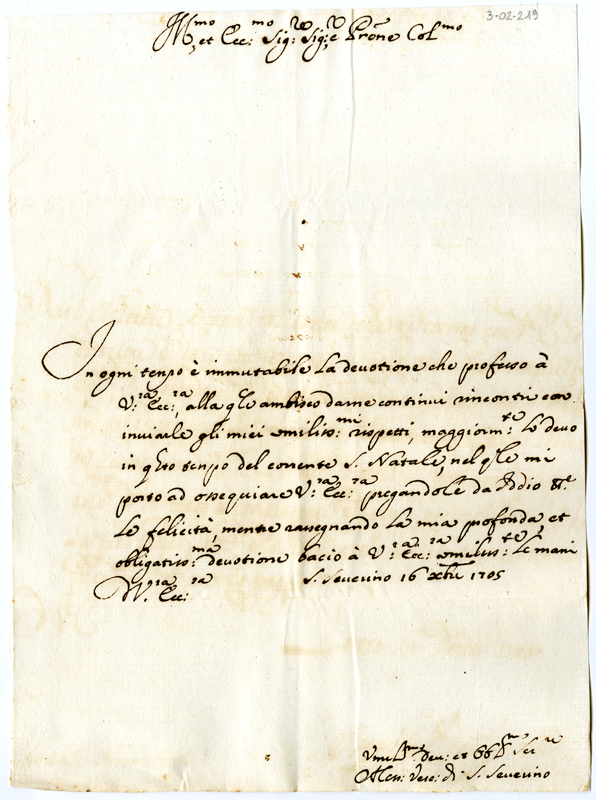 3-02-219
Ill:mo, et Ecc:mo Sig:re Sig:re e Prōne Col:mo
In ogni tempo è immutabile la devotione che professo à
V:ra Ecc:ra, alla q̃le ambisco darne continui rincontri con
inviarle gli miei umiliss:mi rispetti, maggiorm:te lo devo
in q̃sto tempo del corrente S. Natale, nel q̃le mi
porto ad ossequiare V:ra Ecc:ra pregandole da Iddio
le felicità, mentre rassegnando la mia profonda, et
obligatiss:ma devotione bacio à V:ra Ecc:ra umilis:te le mani
S. Severino 16 xbre 1705
V:ra Ecc:ra
Devu: et Obb:mo Ser:re
Aless: Vesc: di S. Severino